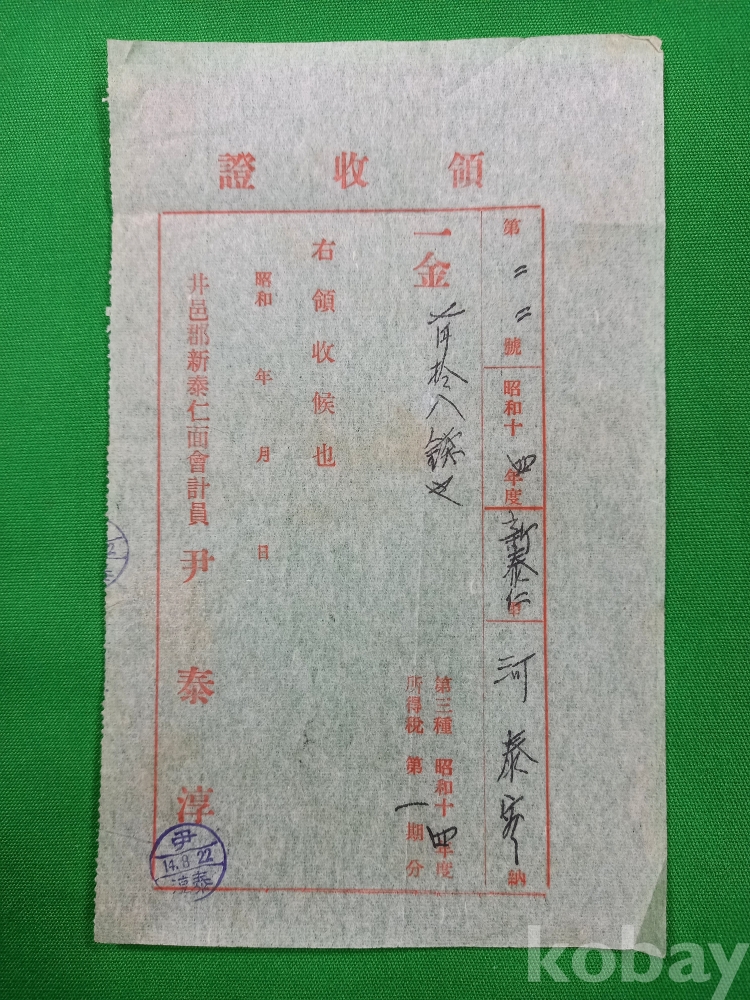 領收證
第二二號 昭和十四年度 新泰仁 河泰 納
一金 拾八錢也
第三種 昭和十四年度
所得稅 第一期分
右領收候也
昭和 年 月 日
井邑郡新泰仁面會計員 尹泰淳
尹
14.8.22
泰淳
kobay